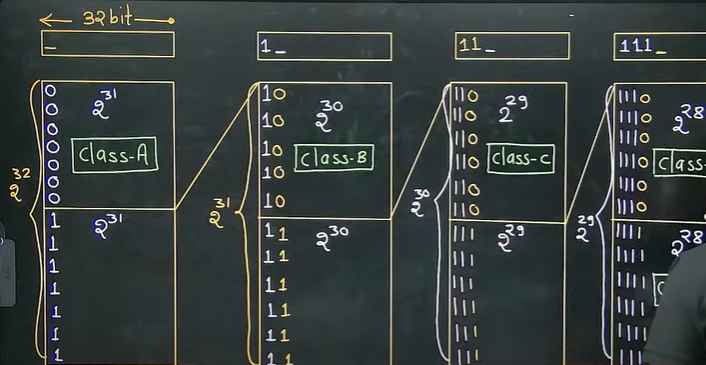 32bit
_
2^32
0
0
0
0
0
0
0
2^31
Class-A
1
1
1
1
1
1
1
2^31
1_
2^31
10
10
10
10
10
2^30
Class-B
11
11
11
11
11
11
2^30
11_
2^30
110
110
110
110
110
110
2^29
Class-C
111
111
111
111
111
111
2^29
111_
2^29
1110
1110
1110
1110
1110
1110
2^28
Class-
1111
1111
1111
1111
1111
1111
2^28
C